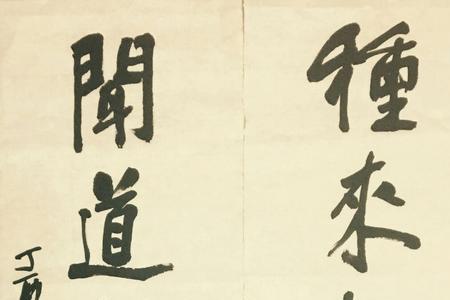 種來
聞道
丁酉